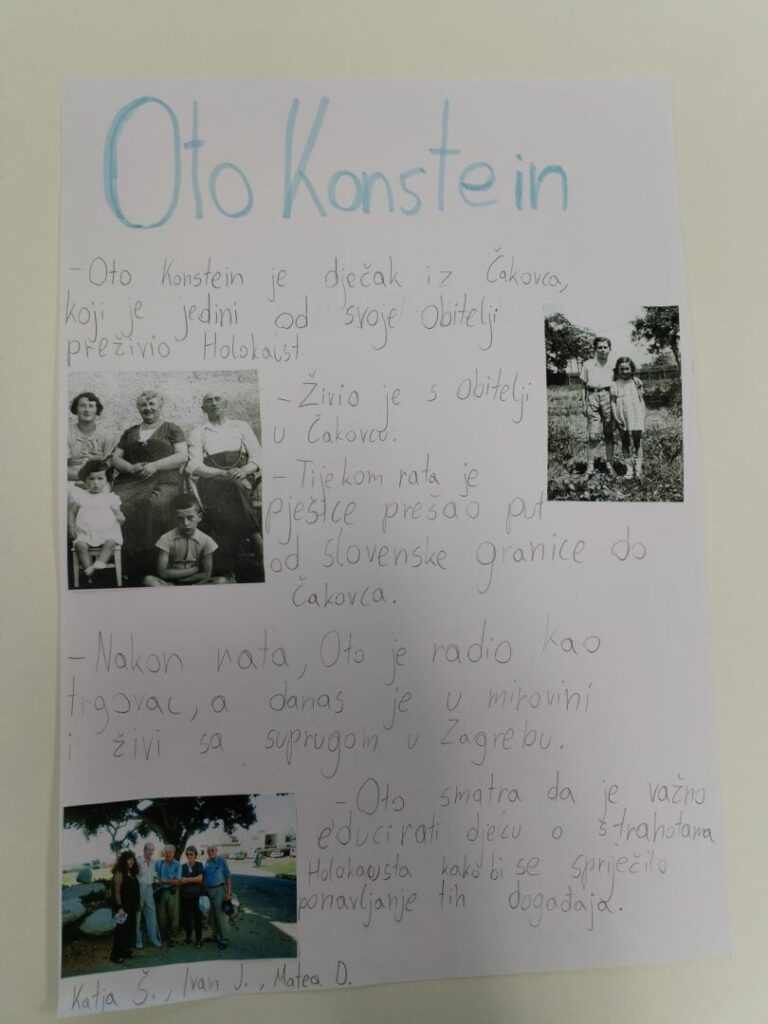 Oto Konstein
- Oto Konstein je dječak iz Čakovca,
koji je jedini od svoje obitelji
preživio Holokaust
- Živio je s obitelji
u Čakovcu.
- Tijekom rata je
pješice prešao put
od slovenske granice do
Čakovca.
- Nakon rata, Oto je radio kao
trgovac, a danas je u mirovini
i živi sa suprugom u Zagrebu.
- Oto smatra da je važno
educirati djecu o strahotama
Holokausta kako bi se spriječilo
ponavljanje tih događaja.
Katja Š., Ivan J., Matea D.